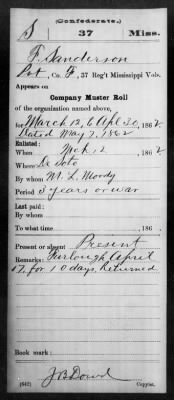 (Confederate.)
S 37 Miss.
F. Sanderson
Pvt, Co. F, 37 Reg't Mississippi Vols.
Appears on
Company Muster Roll
of the organization named above,
for March 12, to Apl 30, 1862
Dated May 7, 1862
Enlisted:
When Mch 12, 1862
Where De Soto
By whom M. L. Moody
Period 3 years or war
Last paid:
By whom
To what time , 186 .
Present or absent Present
Remarks: Furlough April
17, for 10 days, Returned
Book mark:
(642) Copyist.